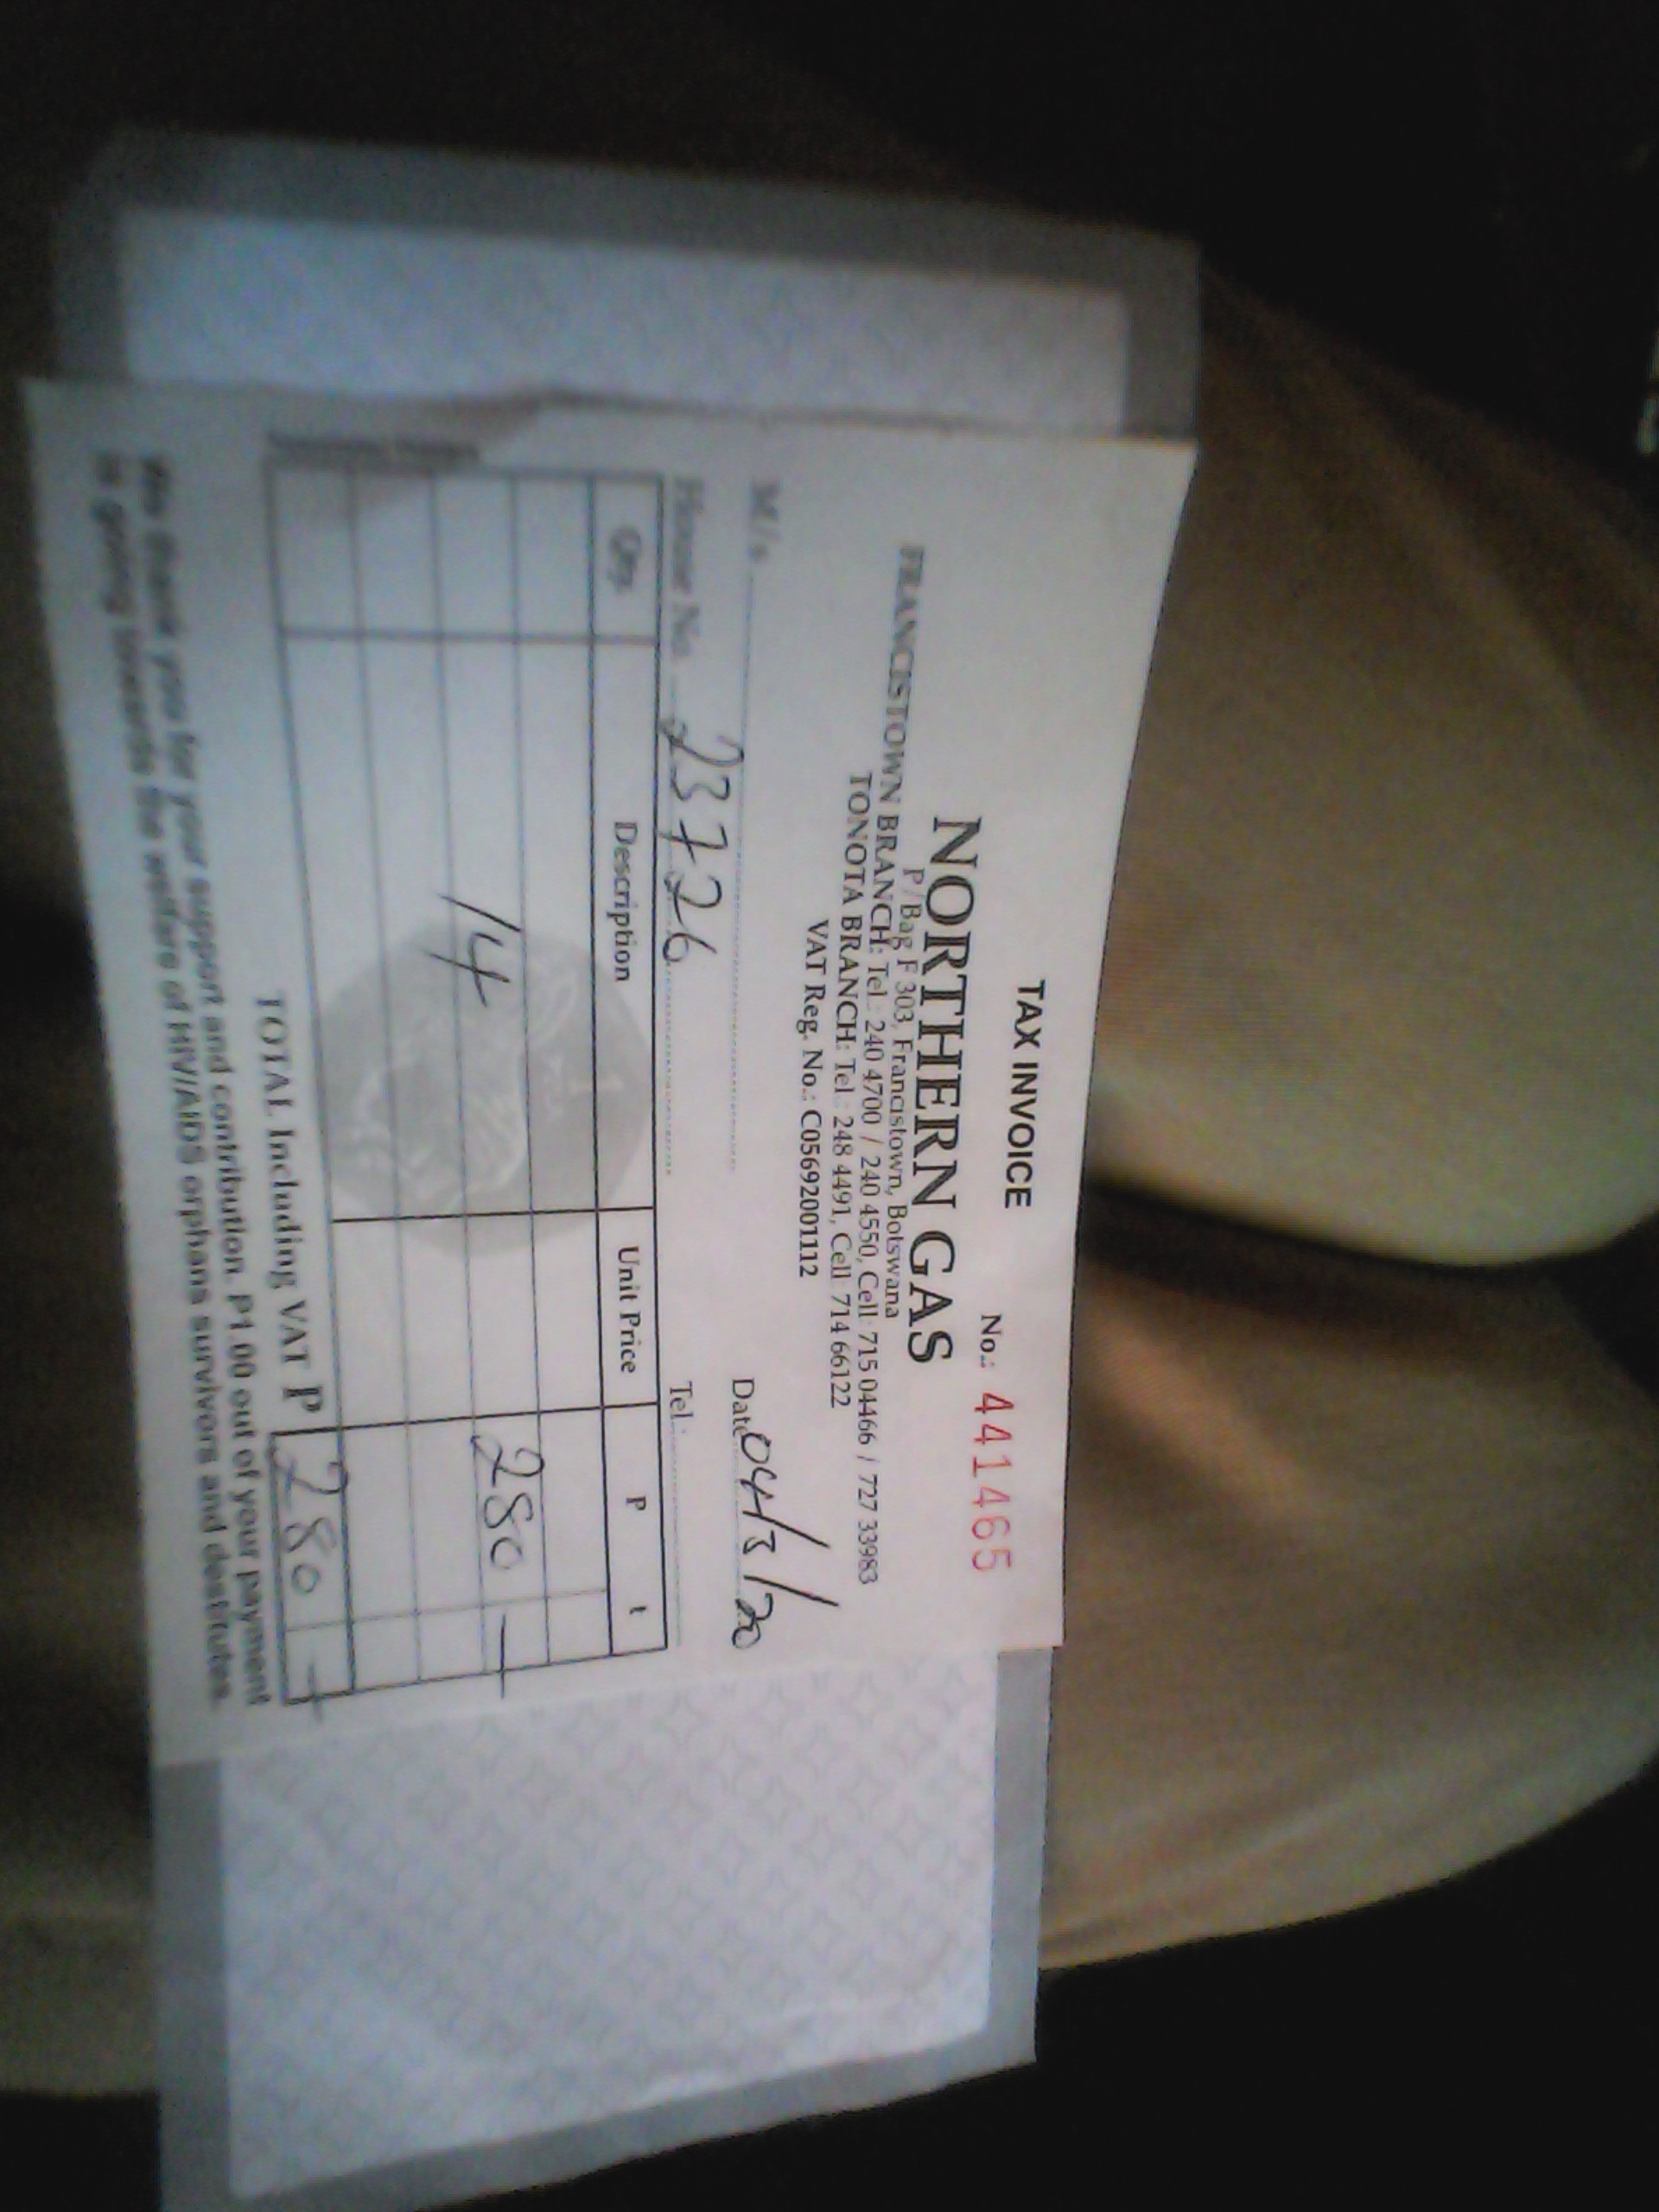 TAX INVOICE
No.: 441465
NORTHERN GAS
P/Bag F 303, Francistown, Botswana
FRANCISTOWN BRANCH: Tel.: 240 4700 / 240 4550, Cell: 715 04466 / 727 33983
TONOTA BRANCH: Tel.: 248 4491, Cell 714 66122
VAT Reg. No.: C05692001112
M/s Date 04/3/20
House No. 23726 Tel.:
Qty. Description Unit Price P t
14 280 -
TOTAL Including VAT P 280 -
We thank you for your support and contribution. P1.00 out of your payment
is going towards the welfare of HIV/AIDS orphans survivors and destitutes.